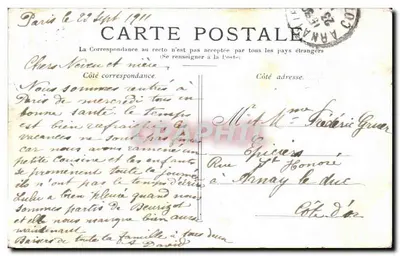 Paris le 22 Sept 1911
CARTE POSTALE
La Correspondance au recto n'est pas acceptée par tous les pays étrangers
(Se renseigner à la Poste)
Chers Neveu et nièce
Côté correspondance
Côté adresse.
Nous sommes rentrés à
Paris de mercredi tous en
bonne santé le temps
est bien
vacances
car nous avons ramené un
petite cousine et les enfants
se promènent toute la journée
ils n'ont pas le temps d'écrire
Lulu a bien pleuré quand nous
sommes partis de
et elle nous manque bien aussi
maintenant
Baisers de toute la famille à tous deux
David
Mr et Mme Frédéric
Epiciers
Rue St Honoré
à Arnay le duc
Côte d'or
ARNAY
23